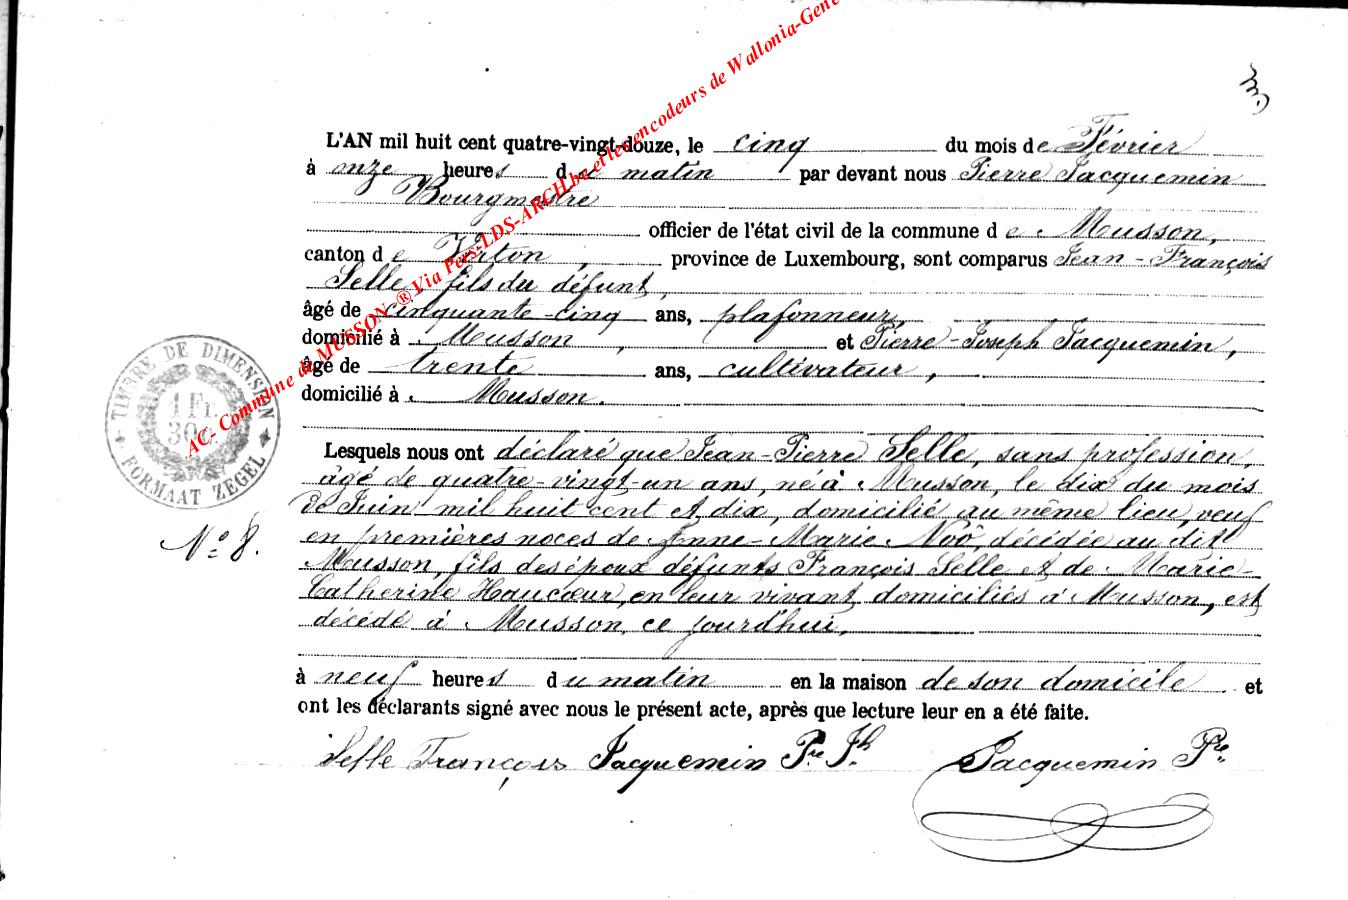 3.
L'AN mil huit cent quatre-vingt-douze, le cinq du mois de Février
à onze heures du matin par devant nous Pierre Jacquemin
Bourgmestre
officier de l'état civil de la commune de Musson,
canton de Virton, province de Luxembourg, sont comparus Jean-François
Selle, fils du défunt,
âgé de cinquante-cinq ans, plafonneur,
domicilié à Musson, et Pierre-Joseph Jacquemin,
âgé de trente ans, cultivateur,
domicilié à Musson.
Lesquels nous ont déclaré que Jean-Pierre Selle, sans profession,
âgé de quatre-vingt-un ans, né à Musson, le dix du mois
de Juin mil huit cent et dix, domicilié au même lieu, veuf
en premières noces de Anne-Marie Noô, décédée au dit
Musson, fils des époux défunts François Selle et de Marie-
Catherine Haucœur, en leur vivant domiciliés à Musson, est
décédé à Musson, ce jourd'hui,
à neuf heures du matin en la maison de son domicile et
ont les déclarants signé avec nous le présent acte, après que lecture leur en a été faite.
Selle François Jacquemin Pre Jh Jacquemin Pre
TIMBRE DE DIMENSION
1 Fr.
30 c.
FORMAAT ZEGEL
No 8.
AC- Commune de MUSSON ® Via Pers-LDS-ARCH.be et les encodeurs de Wallonia-Gene